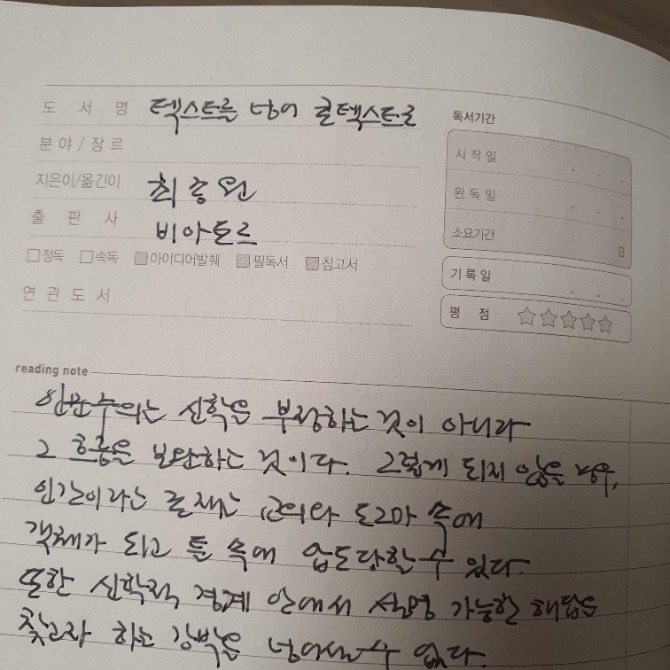 도서명 텍스트를 넘어 콘텍스트로
분야/장르
지은이/옮긴이 최종원
출판사 비아토르
정독 속독 아이디어발췌 필독서 참고서
연관도서
독서기간
시작일 . . .
완독일 . . .
소요기간 일
기록일 . . .
평점
reading note
인문주의는 신학을 부정하는 것이 아니라
그 흐름을 보완하는 것이다. 그렇게 되지 않을 경우,
인간이라는 존재는 교의와 도그마 속에
객체가 되고 틀 속에 압도당할 수 있다.
또한 신학적 경계 안에서 설명 가능한 해답을
찾고자 하는 강박을 넘어설 수 없다